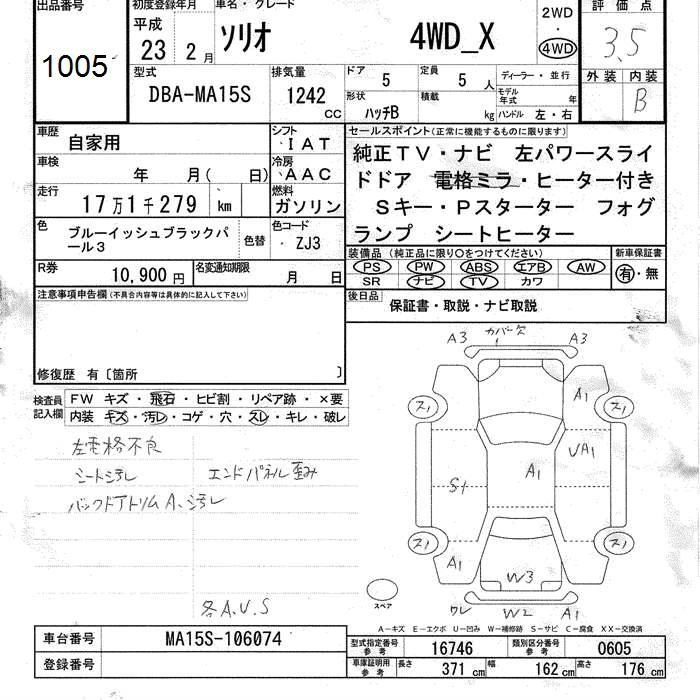 出品番号 初度登録年月 車名・グレード 2WD 評価点
1005 平成 23年 2月 ソリオ 4WD_X ・ 4WD 3.5
型式 排気量 ドア 定員 ディーラー・並行 外装 内装
DBA-MA15S 1242 CC 5 5人 モデル年式 年 B
形状 ハッチB 積載 kg ハンドル 左・右
車歴 自家用 シフト IAT セールスポイント(正常に機能するものに限ります)
車検 年 月( 日) 冷房 AAC 純正TV・ナビ 左パワースライ
走行 17万1千279 km 燃料 ガソリン ドドア 電格ミラ・ヒーター付き
Sキー・Pスターター フォグ
色 ブルーイッシュブラックパール3 色替 色コード ZJ3 ランプ シートヒーター
装備品 (純正品に限り○をつけてください) 新車保証書
R券 10,900円 名変通知期限 月 日 PS PW ABS エアB AW 有・無
SR ナビ TV カワ
注意事項申告欄(不具合内容等は具体的に記入して下さい) 後日品 保証書・取説・ナビ取説
修復歴 有〔箇所 〕
検査員記入欄 FW キズ・飛石・ヒビ割・リペア跡・×要
内装 キズ・汚レ・コゲ・穴・スレ・キレ・破レ
左電格不良
シート汚レ エンドパネル歪み
バックドアトリムA、汚レ
各A.U.S
A3 カバー欠 A3
ス1 A1 ス1
UA1
S1 A1
ス1 ス1
A1 W3
スペア ワレ W2 A1
A-キズ E-エクボ U-凹み W-補修跡 S-サビ C-腐食 XX-交換済
車台番号 MA15S-106074 型式指定番号 参考 16746 類別区分番号 参考 0605
登録番号 車庫証明用 参考 長さ 371 cm 幅 162 cm 高さ 176 cm